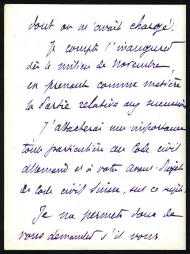 dont on m'avait chargé.
Je compte l'inaugurer
dès le milieu de Novembre,
en prenant comme matière
la Partie relative aux successions
J'attacherai une importance
toute particulière au Code civil
allemand et à votre avant-projet
de Code civil Suisse, sur ce sujet.
Je me permets donc de
vous demander s'il vous